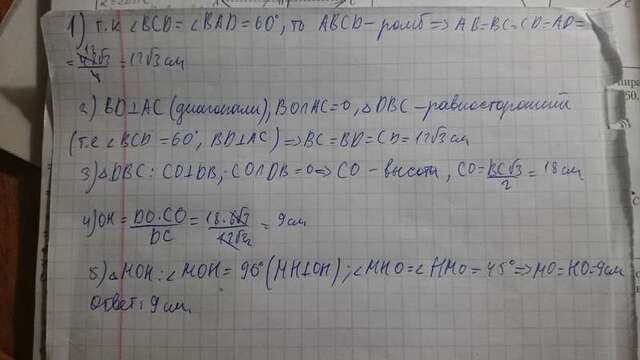 1) т.к ∠BCD = ∠BAD = 60°, то ABCD – ромб ⇒ AB=BC=CD=AD=
= 48√3/4 = 12√3 см
2) BD⊥AC (диагонали), BO∩AC=O, △DBC – равносторонний
(т.к ∠BCD = 60°, BD⊥AC) ⇒ BC=BD=CD=12√3 см
3) △DBC: CO⊥DB, CO∩DB=O ⇒ CO – высота, CO = BC√3/2 = 18 см
4) OH = DO·CO/DC = 18·6√3/12√3 = 9 см
5) △MOH: ∠MOH = 90° (MH⊥OH); ∠MHO = ∠HMO = 45° ⇒ MO=HO=9см
Ответ: 9 см.